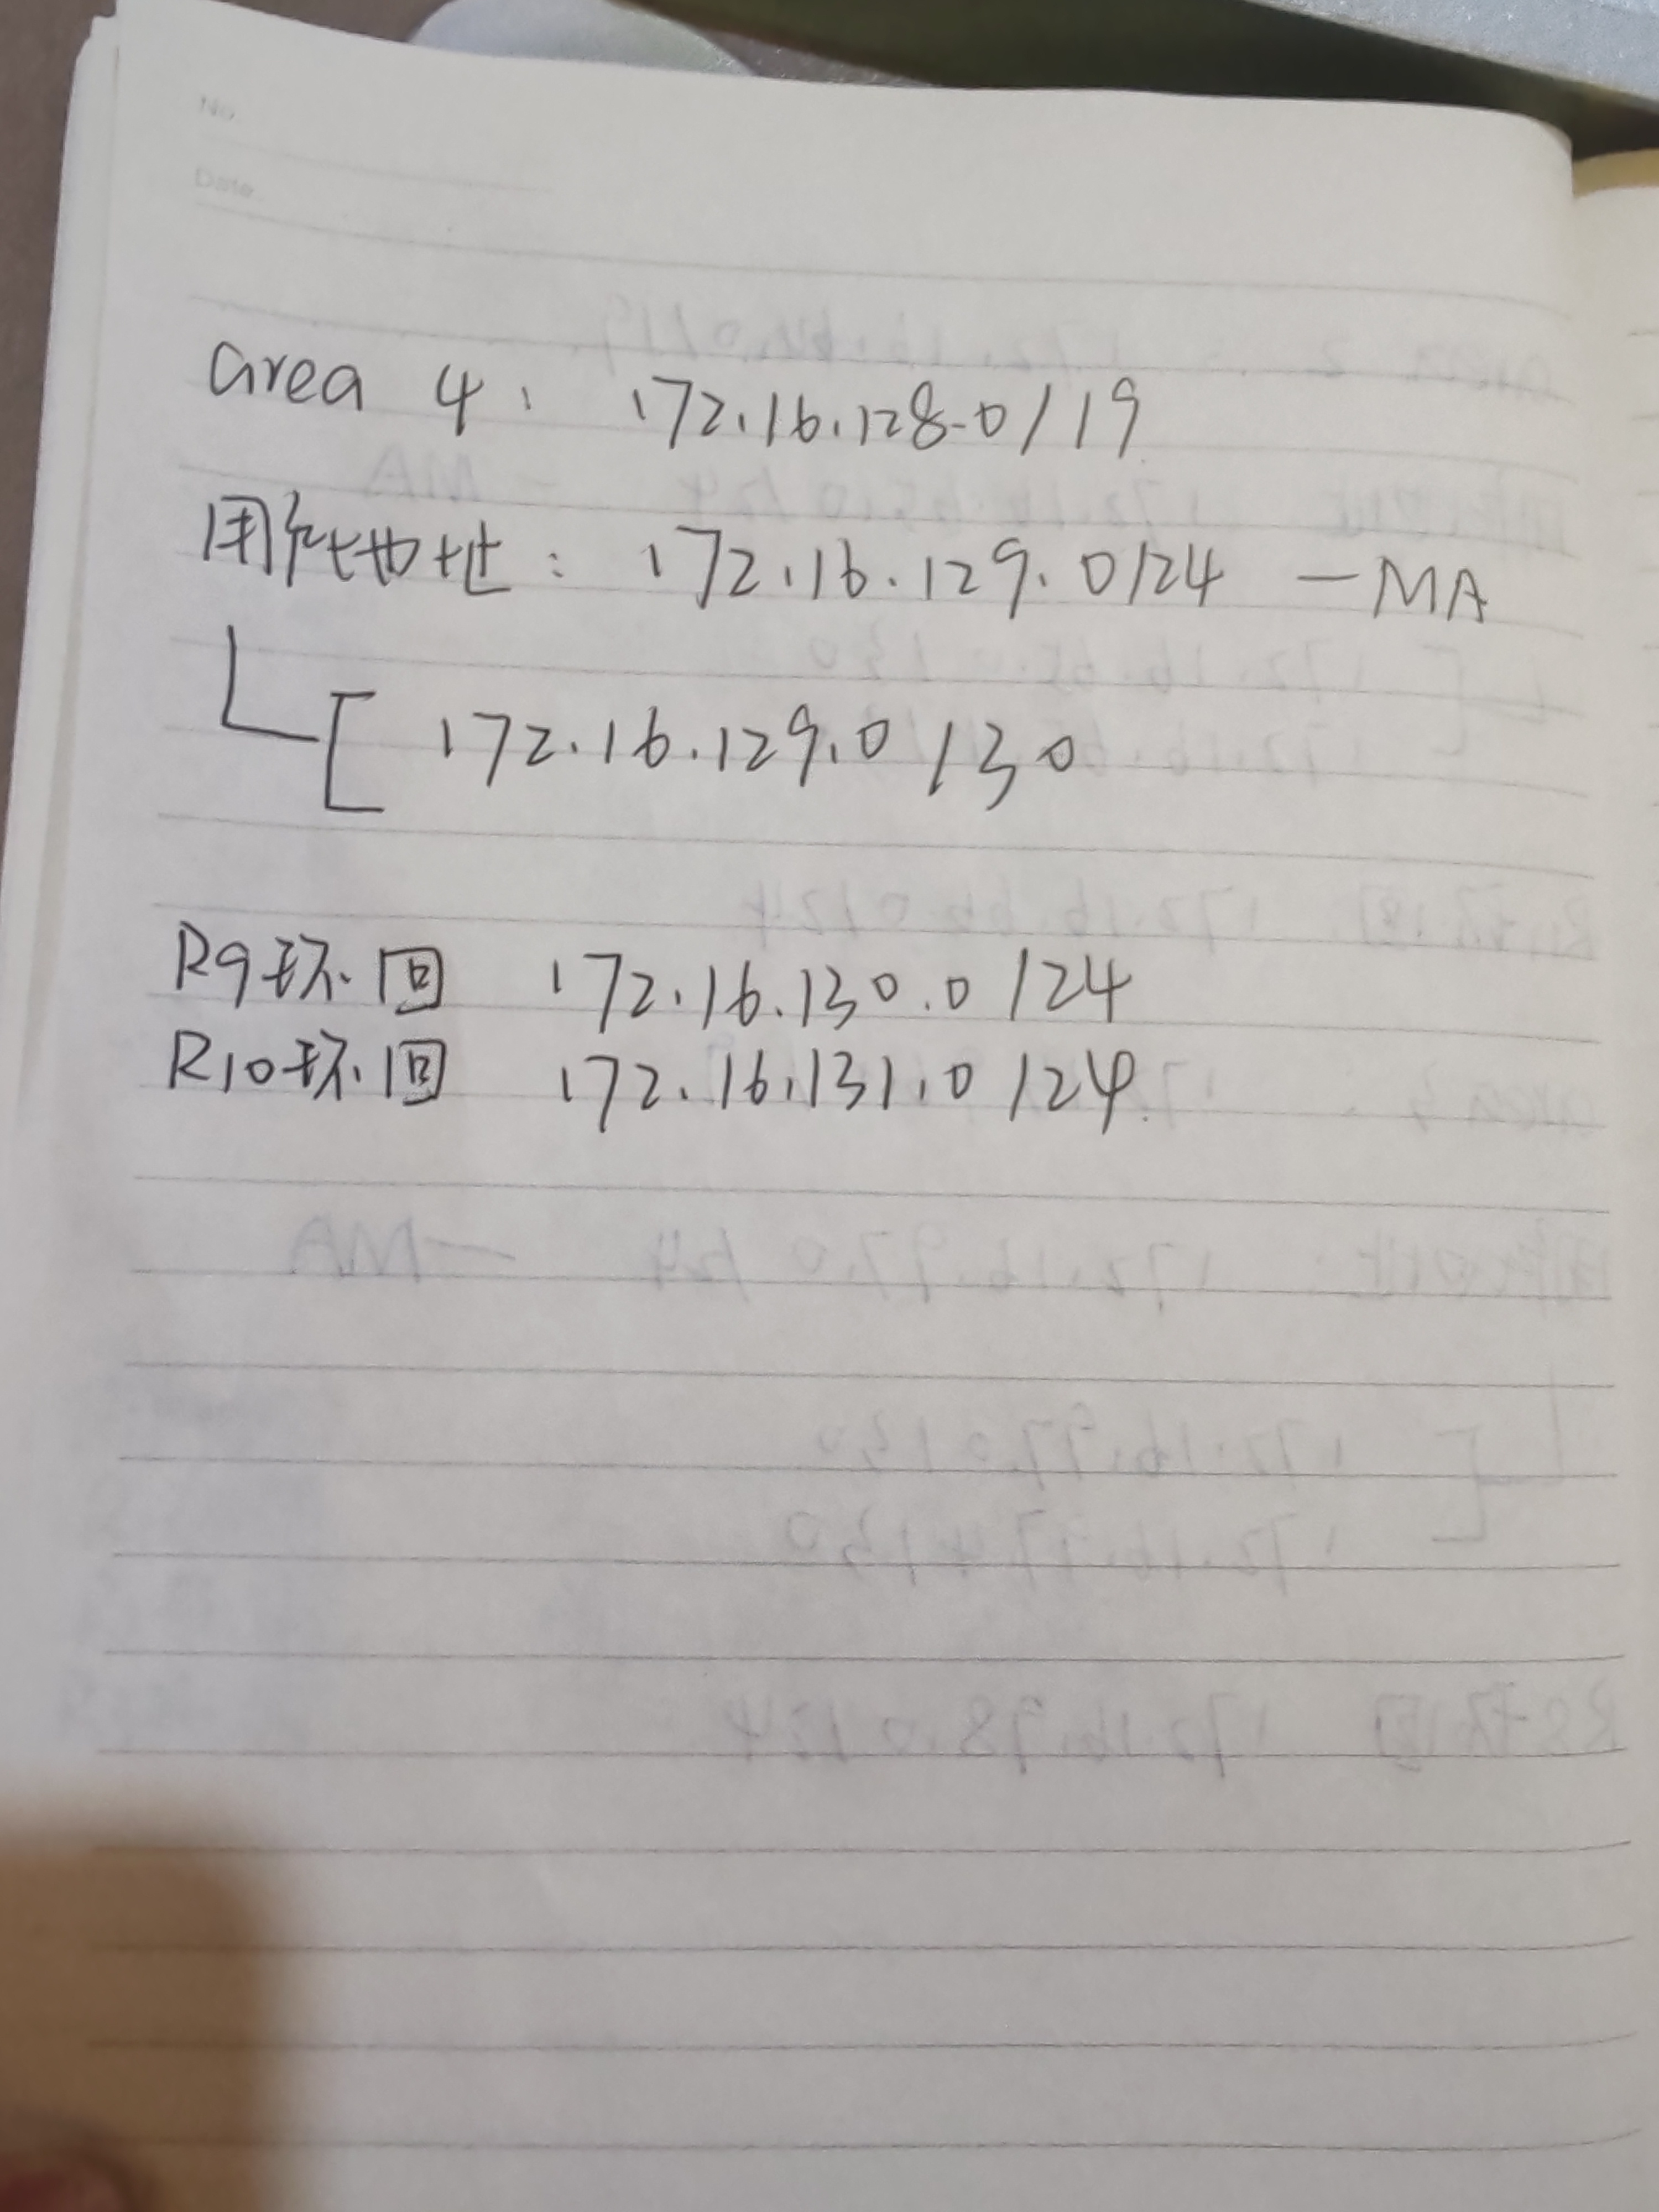 No.
Date
area 4: 172.16.128.0/19
用户地址: 172.16.129.0/24 —MA
172.16.129.0/30
R9环回 172.16.130.0/24
R10环回 172.16.131.0/24